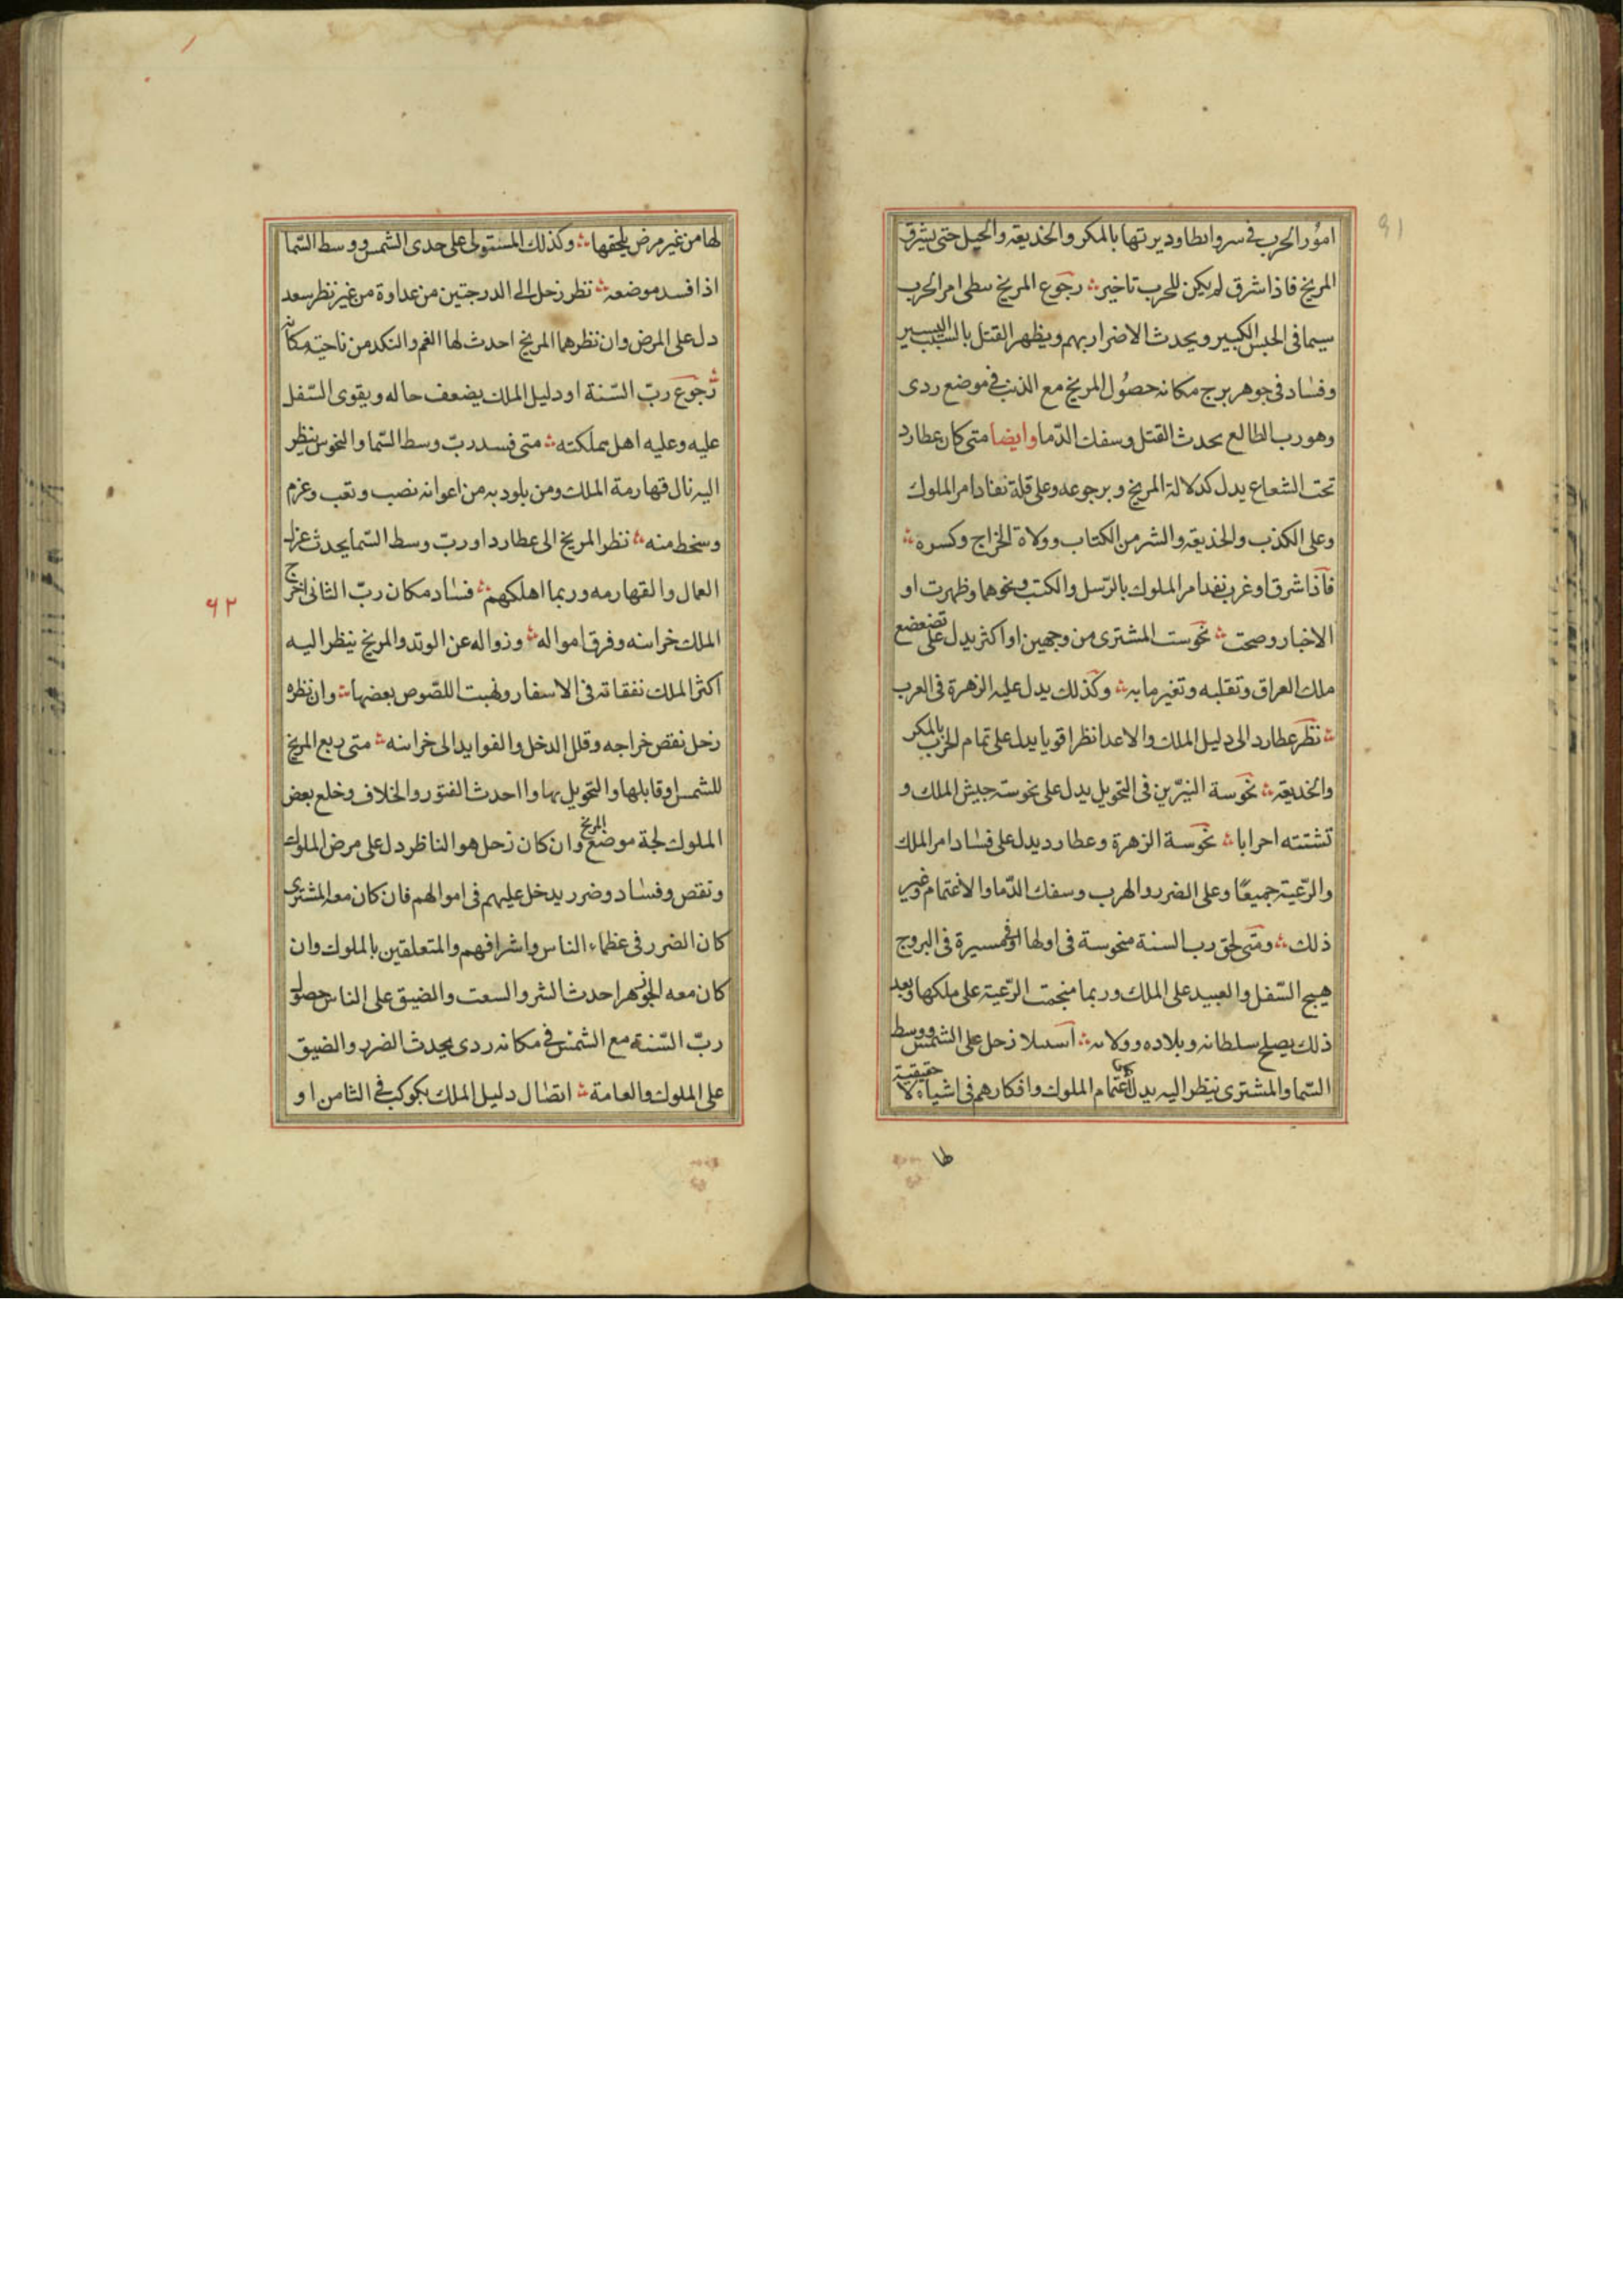 امور الحرب في سر وابطا وديرتها بالمكر والخديعة والحيل حتى يشرق
المريخ فاذا شرق لم يكن للحرب تاخير رجوع المريخ ببطى امر الحرب
سيما فى الحبس الكبير ويحدث الاضرار بهم ويظهر القتل بالسبب اليسير
وفساد فى جوهر برج مكانه حصول المريخ مع الذنب في موضع ردى
وهو رب الطالع يحدث القتل وسفك الدما وايضا متى كان عطارد
تحت الشعاع يدل كدلالة المريخ وبرجوعه وعلى قلة نفاد امر الملوك
وعلى الكذب والخذيعة والشر من الكتاب وولاة الخراج وكسره
فاذا شرق او غرب نفد امر الملوك بالرسل والكتب ونحوها وظهرت او
الاخبار وصحت نحوست المشترى من وجهين او اكثر يدل على تضعضع
ملك العراق وتقلبه وتغير ما به وكذلك يدل عليه الزهرة فى العرب
نظر عطارد الى دليل الملك والاعدا نظرا قويا يدل على تمام الحرب بالمكر
والخديعة نحوسة النيرين فى التحويل يدل على نحوسة جيش الملك و
تشتته احرابا نحوسة الزهرة وعطارد يدل على فساد امر الملك
والرعية جميعا وعلى الضرر والهرب وسفك الدما والاغتمام وغير
ذلك ومتى لحق رب السنة منحوسة فى اولها او في مسيرة فى البروج
هيج السفل والعبيد على الملك وربما منجمت الرعية على ملكها وبعد
ذلك يصلح سلطانه وبلاده وولاته استيلا زحل على الشمس ووسط
السما والمشترى ينظر اليه يدل على اغتمام الملوك وافكارهم فى اشياء لا حقيقية
لها
٩١
لها من غير مرض يلحقها وكذلك المستولى على حدى الشمس ووسط السما
اذا فسد موضعه نظر زحل الى الدرجتين من عداوة من غير نظر سعد
دل على المرض وان نظرهما المريخ احدث لها الغم والنكد من ناحية مكانه
رجوع رب السنة او دليل الملك يضعف حاله ويقوى السفل
عليه وعليه اهل مملكته متى فسد رب وسط السما والنحوس ينظر
اليه نال قهارمة الملك ومن يلود به من اعوانه نصب وتعب وعزم
وسخط منه نظر المريخ الى عطارد او رب وسط السما يحدث عزل
العمال والقهارمه وربما اهلكهم فساد مكان رب الثانى اخرج
الملك خراسه وفرق امواله وزواله عن الوتد والمريخ ينظر اليه
اكثر الملك نفقاته فى الاسفار ونهبت اللصوص بعضها وان نظره
زحل نقص خراجه وقلل الدخل والفوايد الى خراسه متى ربع المريخ
للشمس او قابلها والتحويل بها وا احدث الفتور والخلاف وخلع بعض
الملوك لجة موضع المريخ وان كان زحل هو الناظر دل على مرض الملوك
ونقص وفساد وضرر يدخل عليهم فى اموالهم فان كان معه المشترى
كان الضرر فى عظماء الناس واشرافهم والمتعلقين بالملوك وان
كان معه الجوزهر احدث الشر والسعت والضيق على الناس حصول
رب السنة مع الشمس في مكانه ردى يحدث الضرر والضيق
على الملوك والعامة اتصال دليل الملك بكوكب في الثامن او
٩٢